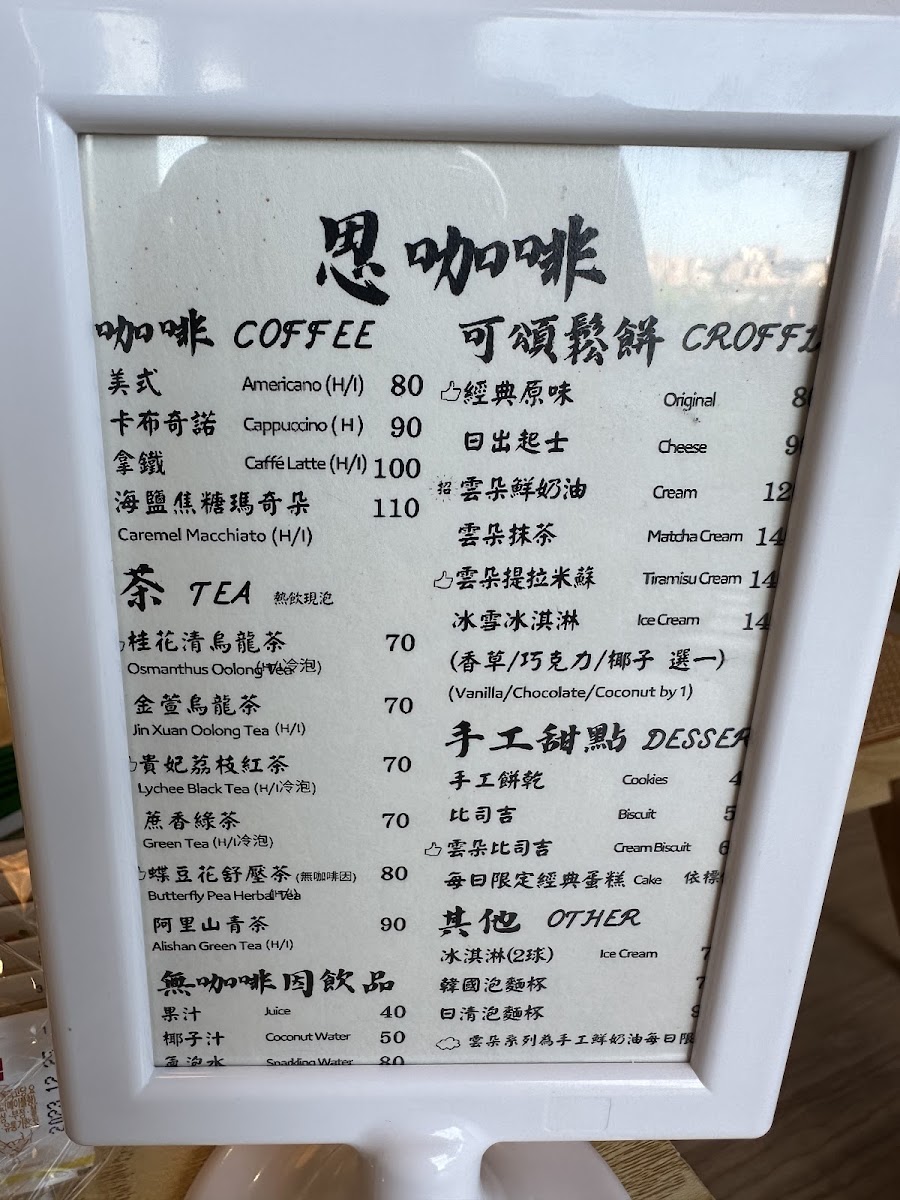 思咖啡
咖啡 COFFEE
美式 Americano (H/I) 80
卡布奇諾 Cappuccino (H) 90
拿鐵 Caffé Latte (H/I) 100
海鹽焦糖瑪奇朵 110
Caremel Macchiato (H/I)
茶 TEA 熱飲現泡
桂花清烏龍茶 70
Osmanthus Oolong Tea (H/I冷泡)
金萱烏龍茶 70
Jin Xuan Oolong Tea (H/I)
貴妃荔枝紅茶 70
Lychee Black Tea (H/I冷泡)
蔗香綠茶 70
Green Tea (H/I冷泡)
蝶豆花舒壓茶 (無咖啡因) 80
Butterfly Pea Herbal Tea
阿里山青茶 90
Alishan Green Tea (H/I)
無咖啡因飲品
果汁 Juice 40
椰子汁 Coconut Water 50
氣泡水 Sparkling Water 80
可頌鬆餅 CROFFL
經典原味 Original 80
日出起士 Cheese 90
招 雲朵鮮奶油 Cream 12
雲朵抹茶 Matcha Cream 14
雲朵提拉米蘇 Tiramisu Cream 14
冰雪冰淇淋 Ice Cream 14
(香草/巧克力/椰子 選一)
(Vanilla/Chocolate/Coconut by 1)
手工甜點 DESSER
手工餅乾 Cookies 4
比司吉 Biscuit 5
雲朵比司吉 Cream Biscuit 6
每日限定經典蛋糕 Cake 依標
其他 OTHER
冰淇淋(2球) Ice Cream 7
韓國泡麵杯 7
日清泡麵杯 9
雲朵系列為手工鮮奶油每日限
2023.12.